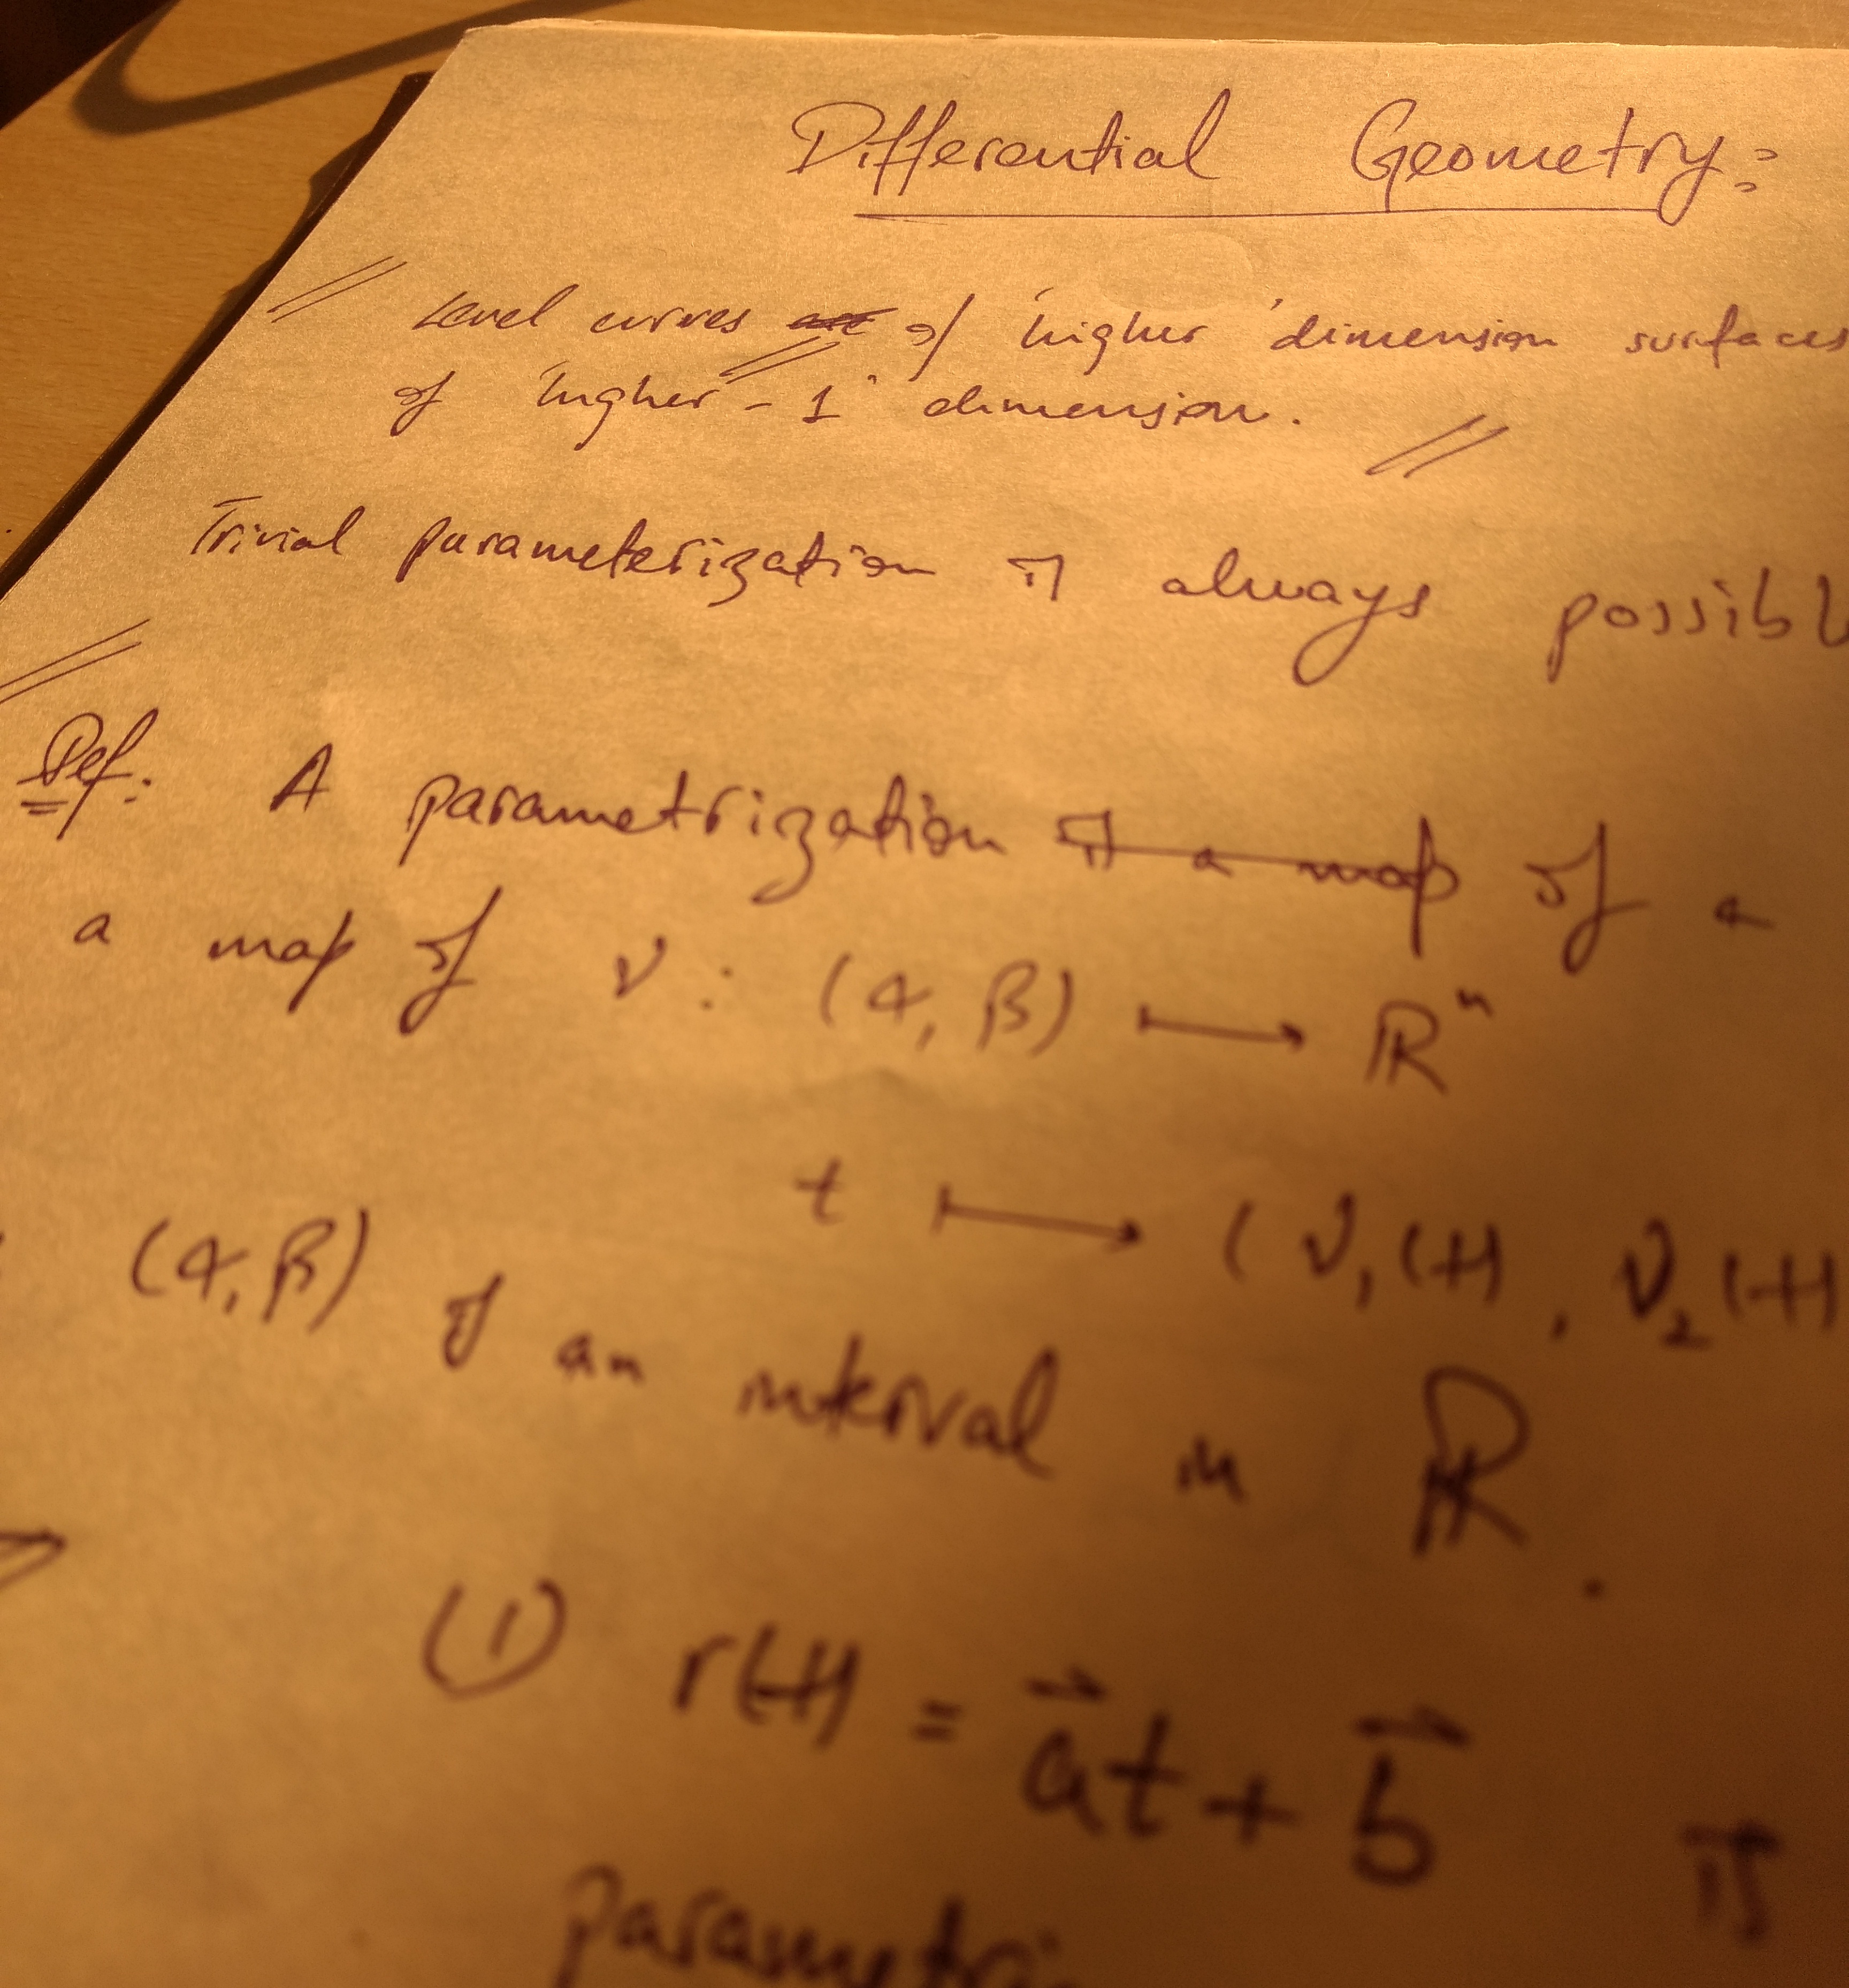 Differential Geometry:
Level curves of 'higher' dimension surfaces
of 'higher - 1' dimension.
Trivial parameterization is always possibl
Def: A parametrization is a map of a
a map of ν : (α, β) ⟼ ℝⁿ
t ⟼ (ν₁(t), ν₂(t)
(α, β) is an interval in ℝ.
(1) r(t) = a⃗t + b⃗ is
parametri